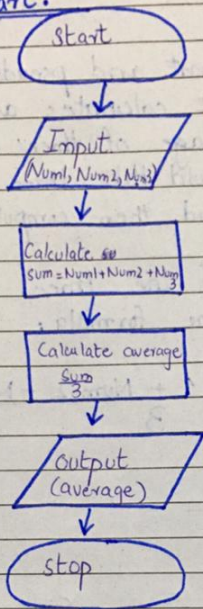 Start
Input
(Num1, Num2, Num3)
Calculate su
sum = Num1 + Num2 + Num
3
Calculate average
sum
3
output
(average)
stop